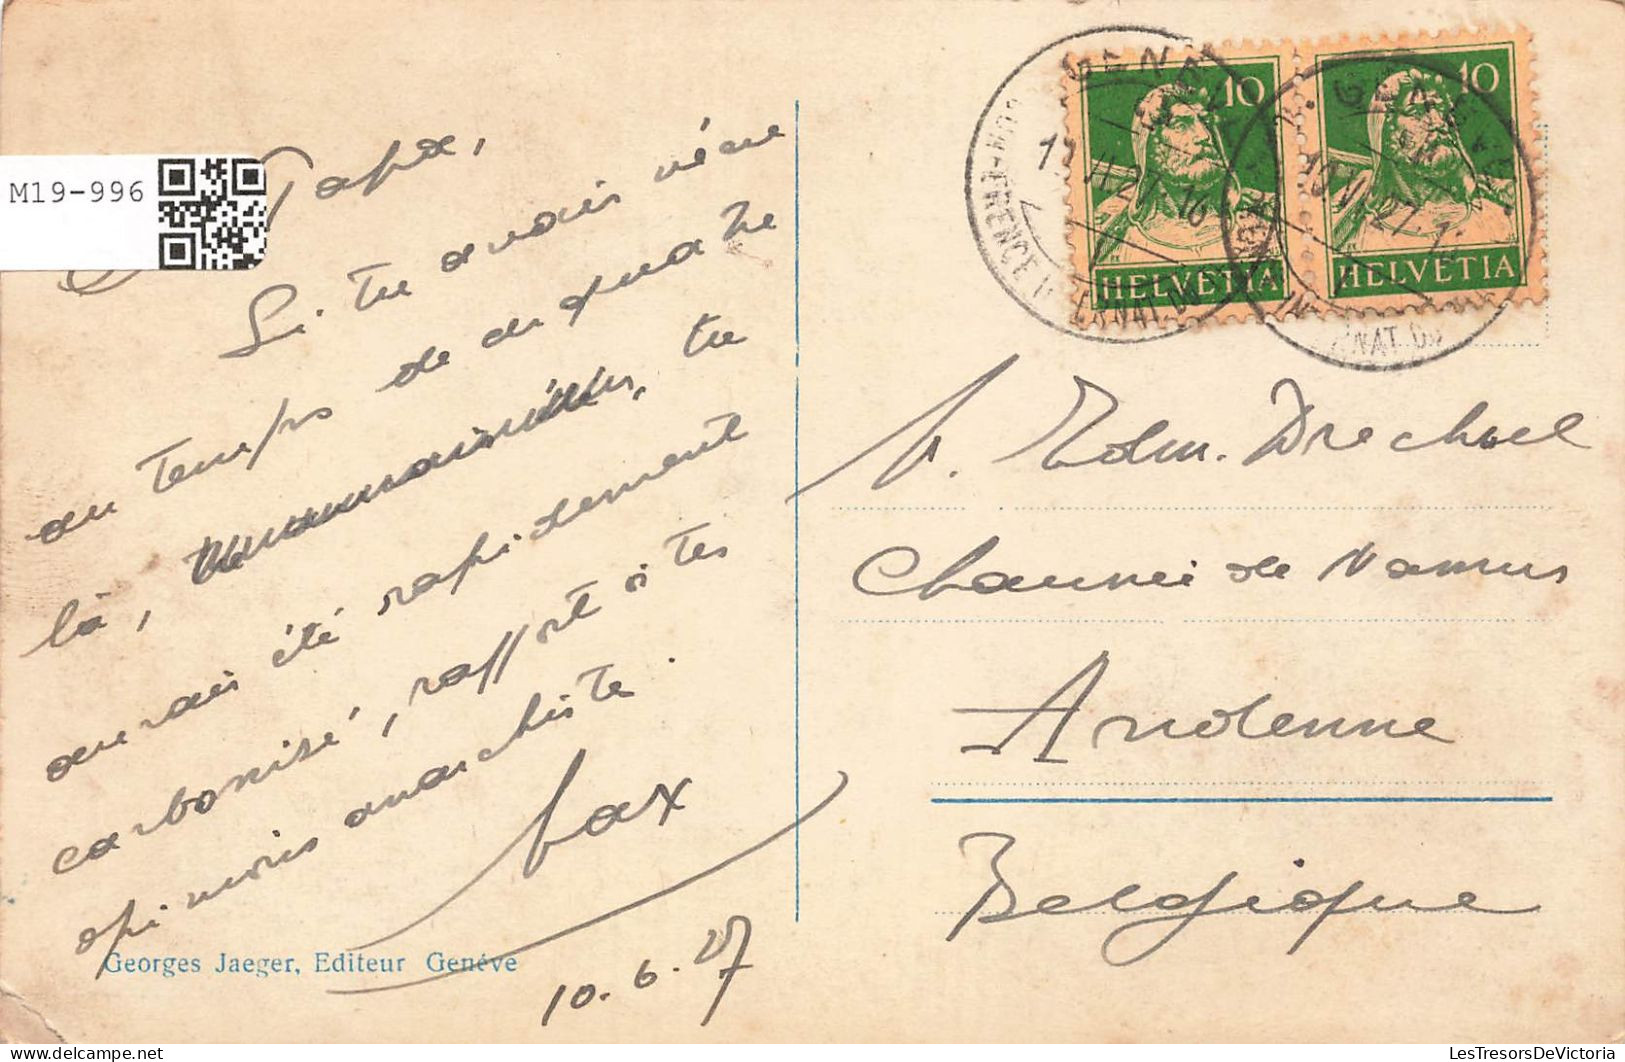 M19-996
Papa,
Si tu avais vécu
au temps de ces quatre
là, tu
aurais été rapidement
carbonisé, rapport à tes
opinions anarchiste.
Max
10.6.27
Georges Jaeger, Editeur Genéve
10 10
HELVETIA HELVETIA
M. Edm. Drechsel
Chaussée de Namur
Andenne
Belgique
LesTresorsDeVictoria